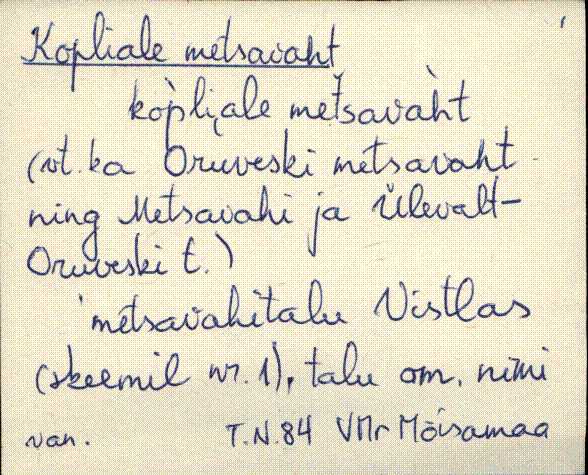 Kopliale metsavaht
kòpliale metsavàht
(vt. ka Oruveski metsavaht
ning Metsavahi ja Ülevalt-
Oruveski t.)
metsavahitalu Vistlas
(skeemil nr. 1), talu om. nimi
van. T.N.84 VMr Mõisamaa